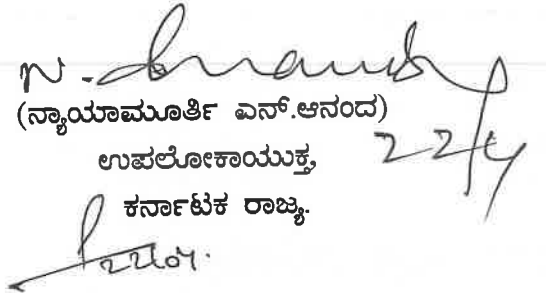 N. Anand
(ನ್ಯಾಯಾಮೂರ್ತಿ ಎನ್.ಆನಂದ)
ಉಪಲೋಕಾಯುಕ್ತ,
22/4
ಕರ್ನಾಟಕ ರಾಜ್ಯ.